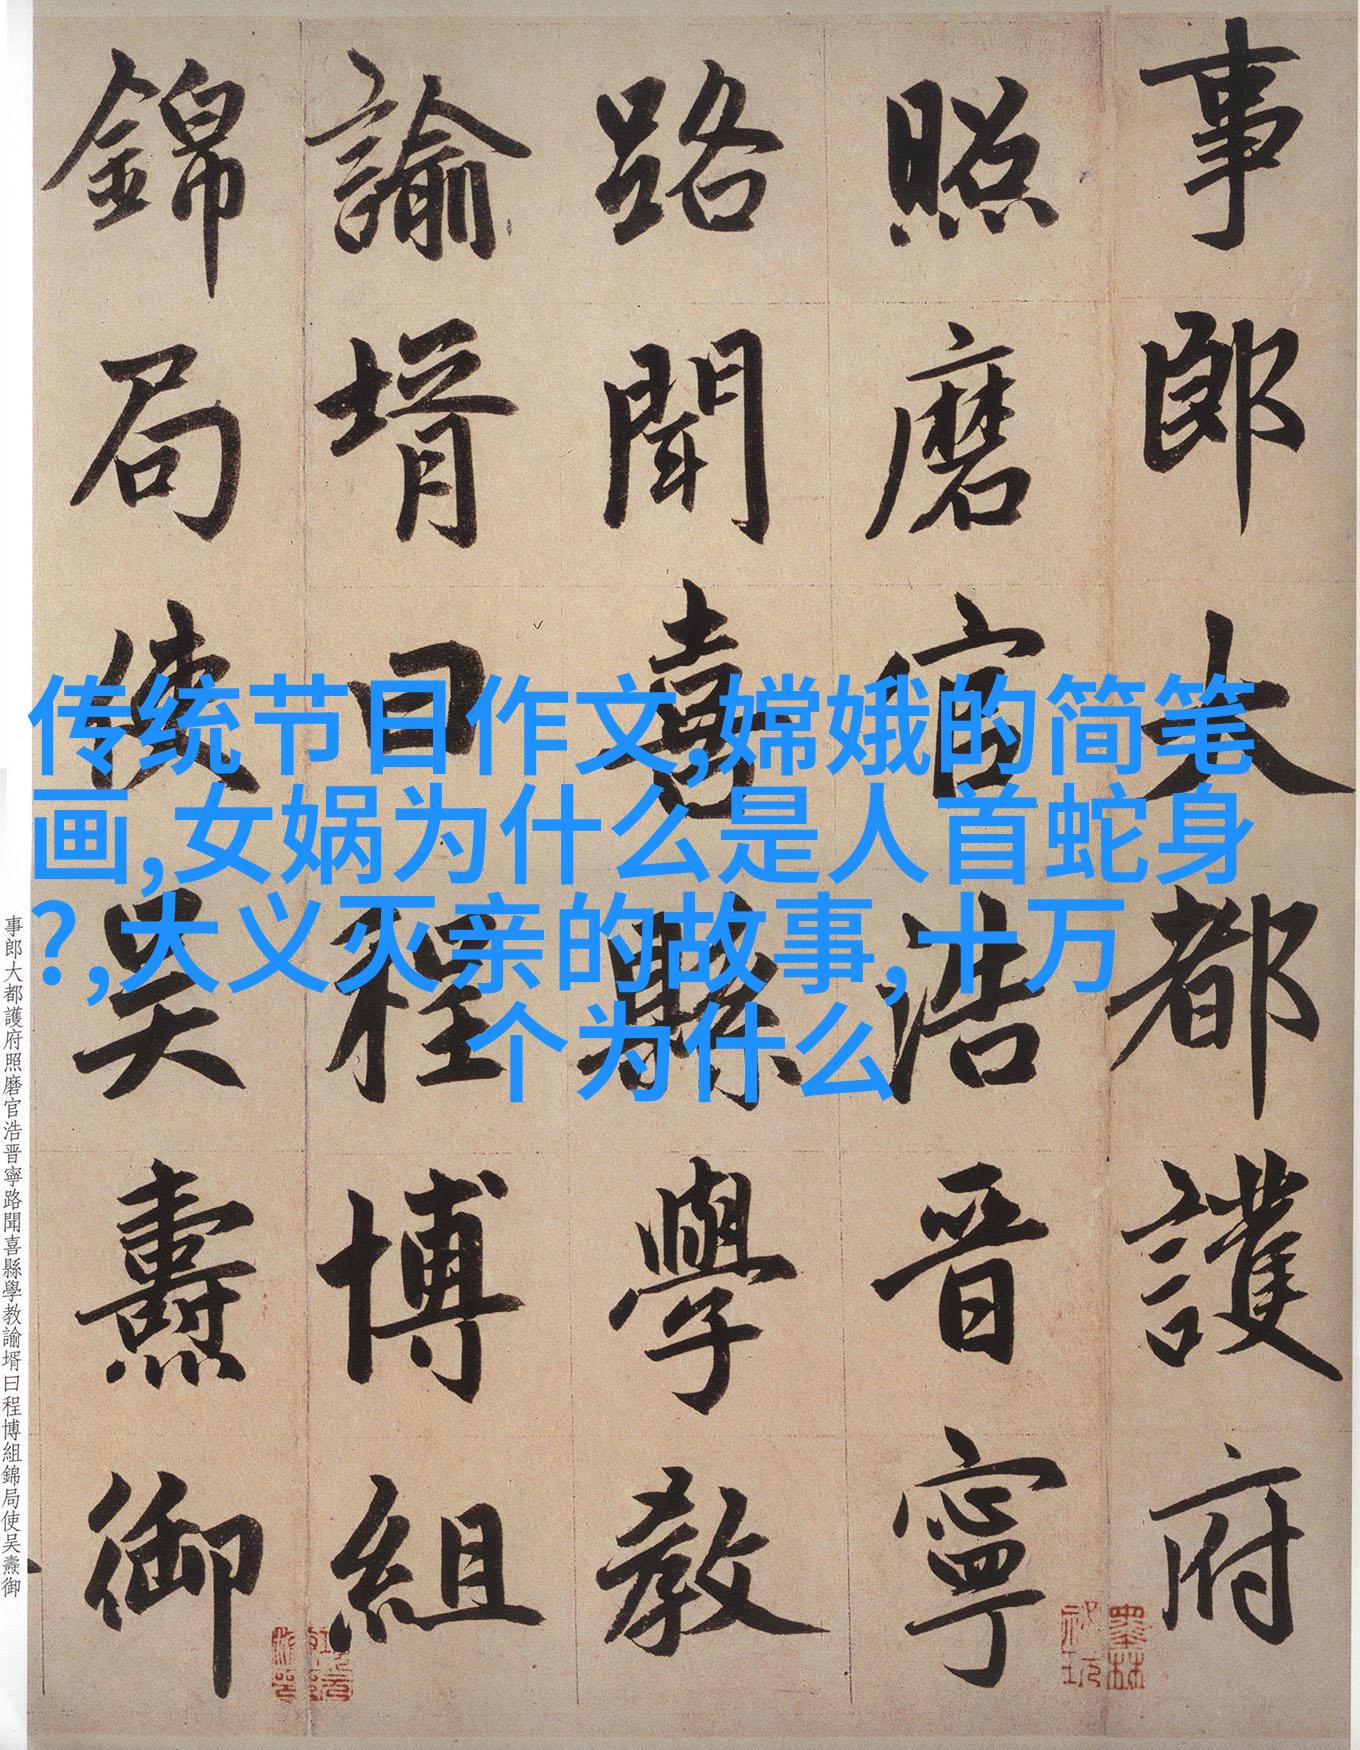 事郎大都護府
照磨官浩晋寧
路聞喜縣學教
諭壻曰程博組
錦局使吴燾御
传统节日作文,嫦娥的简笔
画,女娲为什么是人首蛇身
?,大义灭亲的故事,十万
个为什么
事郎大都護府照磨官浩晋寧路聞喜縣學教諭壻曰程博組錦局使吴燾御